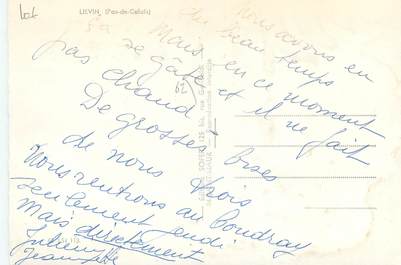 Lot
LIÉVIN (Pas-de-Calais)
Nous avons eu
du beau temps
Mais en ce moment
ça se gâte et il ne fait
pas chaud.
De grosses bises
de nous trois
Nous rentrons au Coudray
seulement jeudi
Mais directement
Juliana
Jeannette